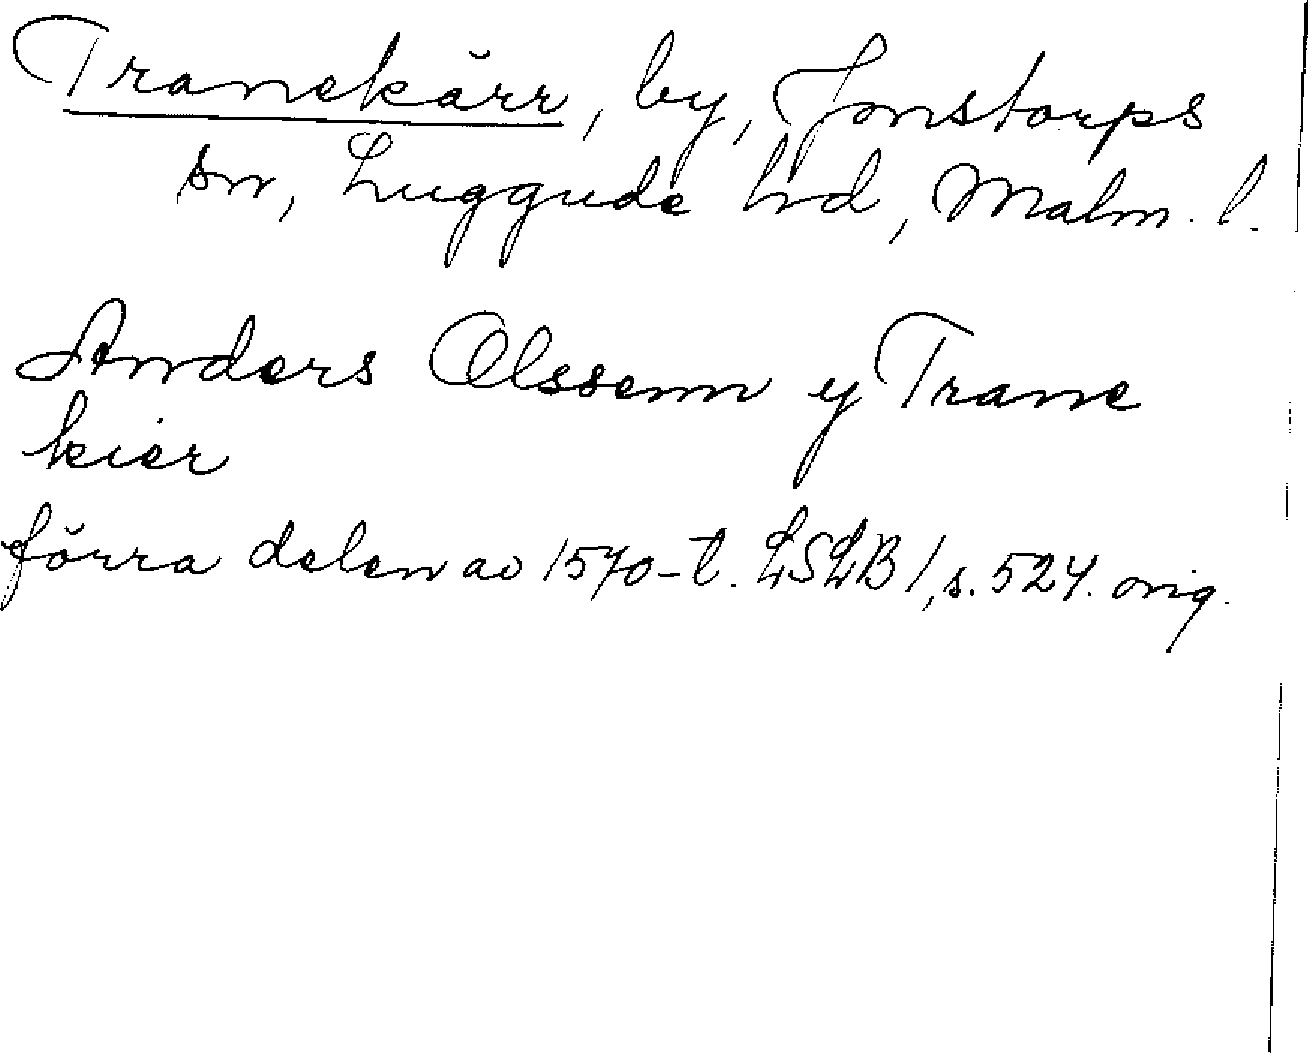 Tranekärr, by, Jonstorps
sn, Luggude hrd, Malm. l.
Anders Olssenn y Trane
kier
förra delen av 1570-t. LSLB 1, s. 524. orig.